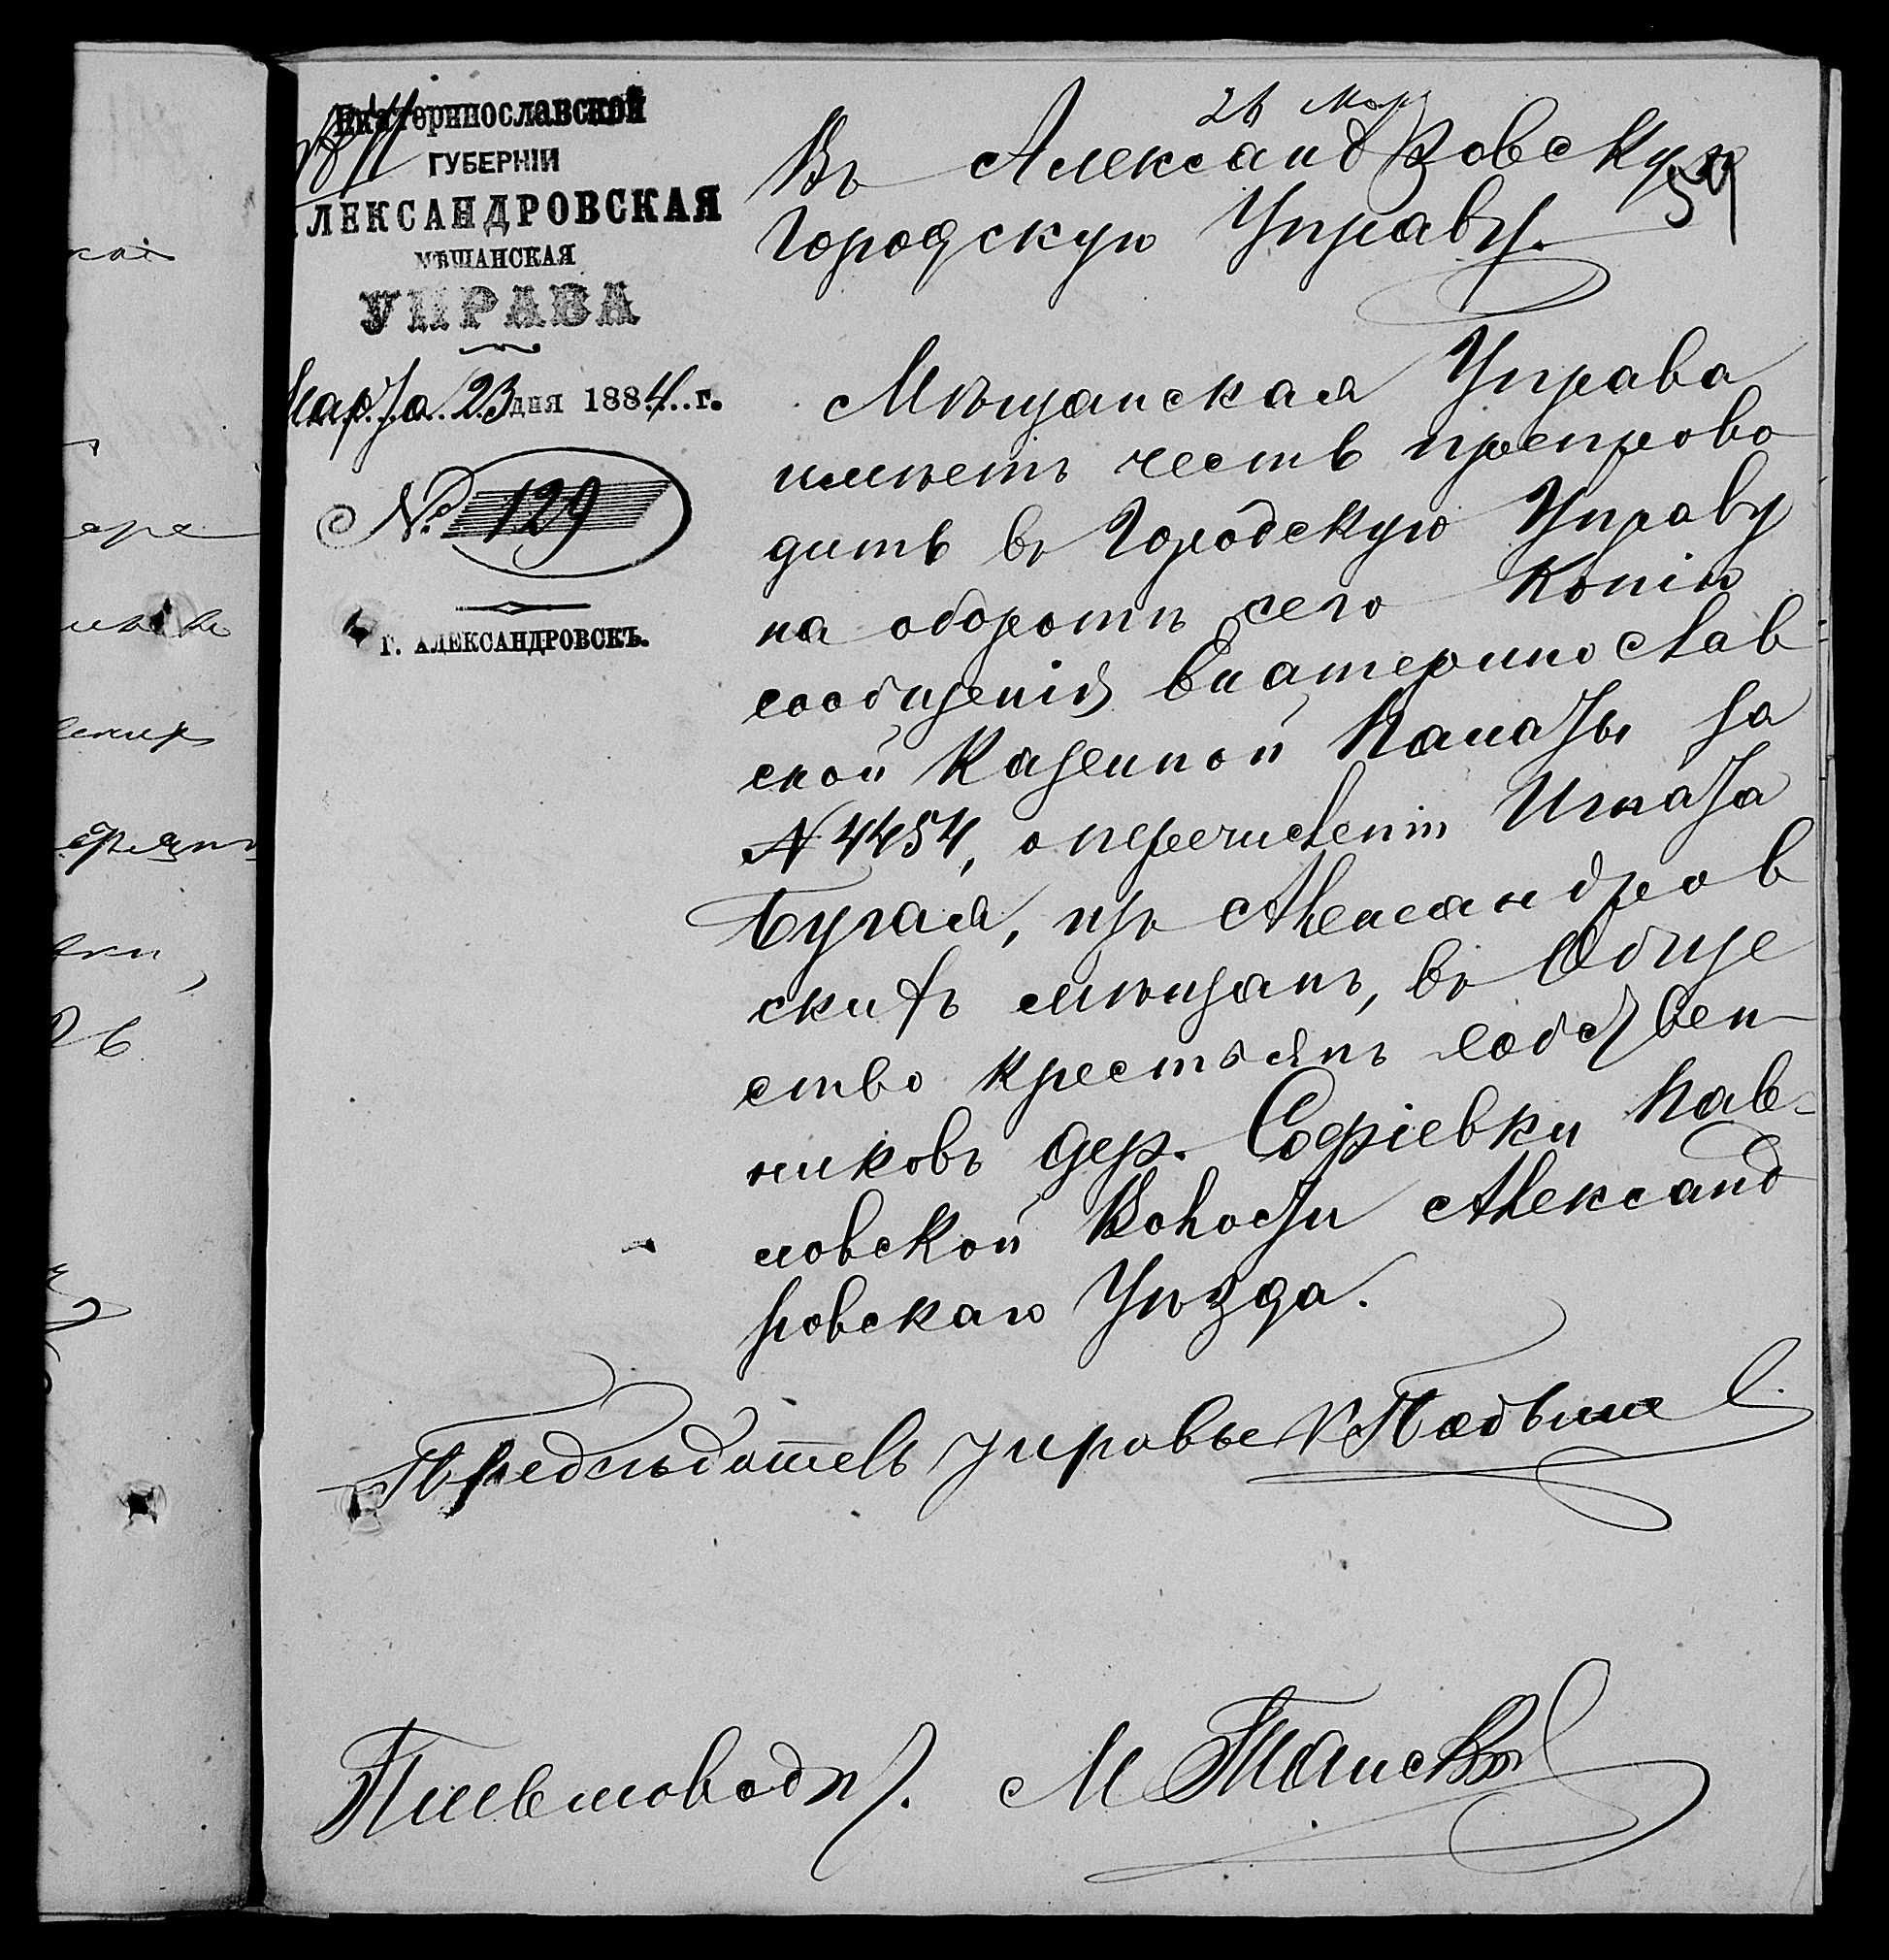 Екатеринославской
ГУБЕРНІИ
АЛЕКСАНДРОВСКАЯ
МѢЩАНСКАЯ
УПРАВА
Марта 23 дня 1884 г.
№ 129
Г. АЛЕКСАНДРОВСКЪ.
26 Мар
Въ Александровскую
59
Городскую Управу.
Мѣщанская Управа
имѣетъ честь препрово
дить въ Городскую Управу
на оборотѣ сего Копію
сообщенія Екатеринослав
ской Казенной Палаты за
№ 4454, о перечисленіи Игната
Бугая, изъ Александров
скихъ мѣщанъ, въ Обще
ство крестьянъ собствен
никовъ дер. Софіевки Пав-
ловской Волости Александ
ровскаго Уѣзда.
Предсѣдатель управы
Письмоводит. М